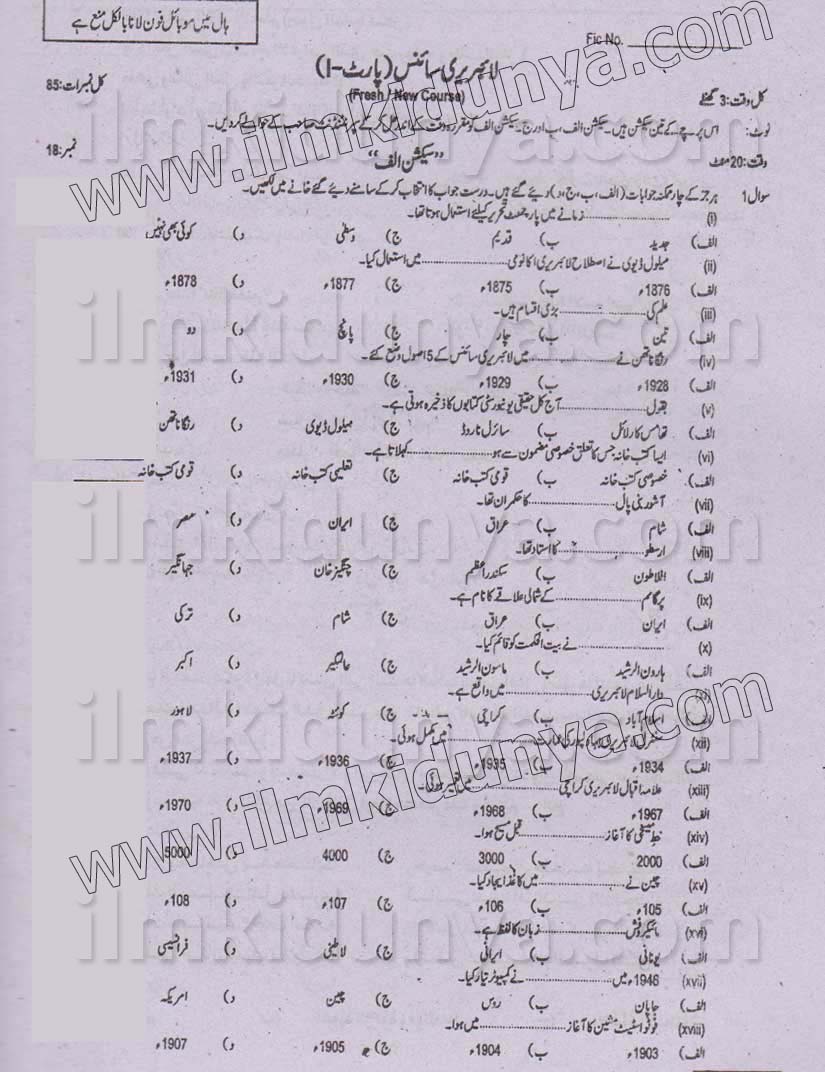 ہال میں موبائل فون لانا بالکل منع ہے
Fic No.
لائبریری سائنس (پارٹ-I)
(Fresh / New Course)
کل وقت: 3 گھنٹے
کل نمبرات: 85
نوٹ: اس پرچے کے تین سیکشن ہیں۔ سیکشن الف، ب اور ج۔ سیکشن الف کو مقررہ وقت کے اندر حل کر کے سپرنٹنڈنٹ صاحب کے حوالے کردیں۔
وقت: 20 منٹ
"سیکشن الف"
نمبر: 18
سوال 1 ہر جز کے چار ممکنہ جوابات (الف، ب، ج، د) دیے گئے ہیں۔ درست جواب کا انتخاب کر کے سامنے دیئے گئے خانے میں لکھیں۔
(i) ............ زمانے میں پارچمنٹ تحریر کیلئے استعمال ہوتا تھا۔
الف) جدید ب) قدیم ج) وسطی د) کوئی بھی نہیں
(ii) میلول ڈیوی نے اصطلاح لائبریری اکانومی ............ میں استعمال کیا۔
الف) 1876ء ب) 1875ء ج) 1877ء د) 1878ء
(iii) علم کی ............ بڑی اقسام ہیں۔
الف) تین ب) چار ج) پانچ د) دو
(iv) رنگا ناتھن نے ............ میں لائبریری سائنس کے 5 اصول وضع کئے۔
الف) 1928ء ب) 1929ء ج) 1930ء د) 1931ء
(v) بقول ............ آج کل حقیقی یونیورسٹی کتابوں کا ذخیرہ ہوتی ہے۔
الف) تھامس کارلائل ب) سائرل نارووڈ ج) میلول ڈیوی د) رنگا ناتھن
(vi) ایسا کتب خانہ جس کا تعلق خصوصی مضمون سے ہو ............ کہلاتا ہے۔
الف) خصوصی کتب خانہ ب) قومی کتب خانہ ج) تعلیمی کتب خانہ د) قومی کتب خانہ
(vii) آشور بنی پال ............ کا حکمران تھا۔
الف) شام ب) عراق ج) ایران د) مصر
(viii) ارسطو ............ کا استاد تھا۔
الف) افلاطون ب) سکندر اعظم ج) چنگیز خان د) جہانگیر
(ix) پرگامم ............ کے شمالی علاقے کا نام ہے۔
الف) ایران ب) عراق ج) شام د) ترکی
(x) ............ نے بیت الحکمت کو قائم کیا۔
الف) ہارون الرشید ب) مامون الرشید ج) عالمگیر د) اکبر
(xi) دارالسلام لائبریری ............ میں واقع ہے۔
الف) اسلام آباد ب) کراچی ج) کوئٹہ د) لاہور
(xii) سنٹرل لائبریری بہاولپور کی عمارت ............ میں مکمل ہوئی۔
الف) 1934ء ب) 1935ء ج) 1936ء د) 1937ء
(xiii) علامہ اقبال لائبریری کراچی ............ میں تعمیر ہوئی۔
الف) 1967ء ب) 1968ء ج) 1969ء د) 1970ء
(xiv) خط میخی کا آغاز ............ قبل مسیح ہوا۔
الف) 2000 ب) 3000 ج) 4000 د) 5000
(xv) چین نے ............ میں کاغذ ایجاد کیا۔
الف) 105ء ب) 106ء ج) 107ء د) 108ء
(xvi) مائیکروفش ............ زبان کا لفظ ہے۔
الف) یونانی ب) ایرانی ج) لاطینی د) فرانسیسی
(xvii) 1946ء میں ............ نے کمپیوٹر تیار کیا۔
الف) جاپان ب) روس ج) چین د) امریکہ
(xviii) فوٹو اسٹیٹ مشین کا آغاز ............ میں ہوا۔
الف) 1903ء ب) 1904ء ج) 1905ء د) 1907ء
www.ilmkidunya.com
www.ilmkidunya.com
ilmkidunya.com
ilmkidunya.com
ilmkidunya.com
ilmkidunya.com
ilmkidunya.com